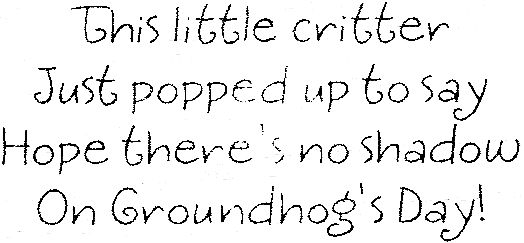 This little critter
Just popped up to say
Hope there's no shadow
On Groundhog's Day!